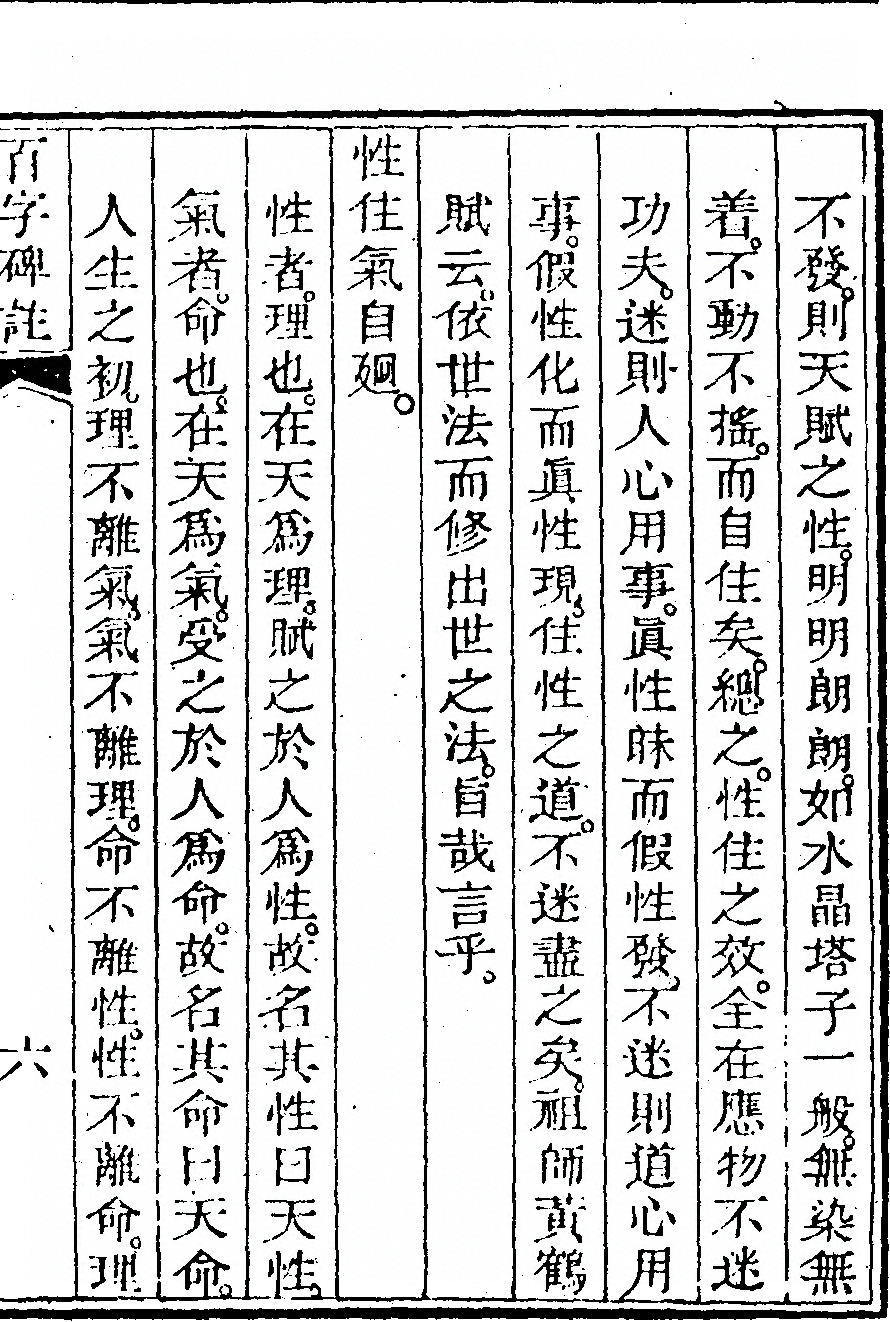 不發。則天賦之性。明明朗朗。如水晶塔子一般。無染無
着。不動不搖。而自住矣。總之。性住之效。全在應物不迷
功夫。迷則人心用事。眞性昧而假性發。不迷則道心用
事。假性化而眞性現。住性之道。不迷盡之矣。祖師黃鶴
賦云。依世法而修出世之法。旨哉言乎。
性住氣自廻。
性者。理也。在天爲理。賦之於人爲性。故名其性曰天性。
氣者。命也。在天爲氣。受之於人爲命。故名其命曰天命。
人生之初。理不離氣。氣不離理。命不離性。性不離命。理
百字碑註
六